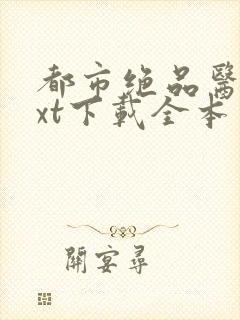 都市绝品醫
xt下載全本
開宴尋